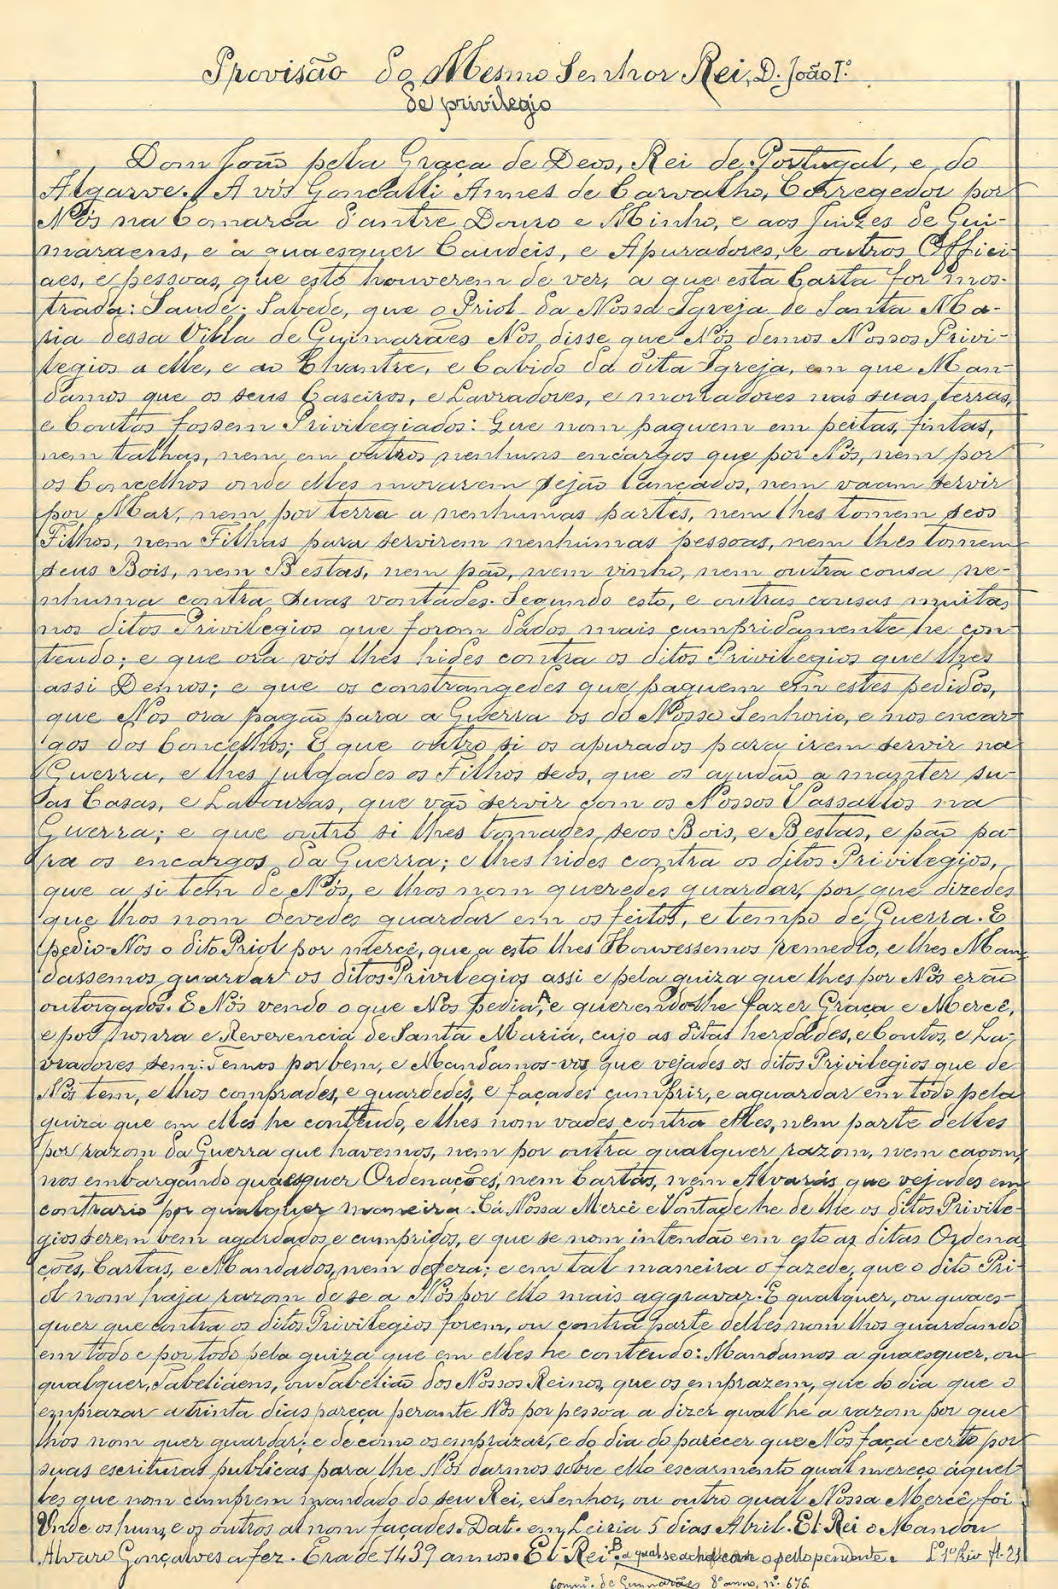 Provisão do Mesmo Senhor Rei, D. João I.º
de privilegio
Dom João pela Graça de Deos, Rei de Portugal, e do
Algarve. A vós Goncalli Annes de Carvalho, Corregedor por
Nós na Comarca d'antre Douro e Minho, e aos Juizes de Gui-
maraens, e a quaesquer Coudeis, e Apuradores, e outros Offici-
aes, e pessoas, que esto houverem de ver, a que esta Carta for mos-
trada: Saude: Sabede, que o Priol da Nossa Igreja de Santa Ma-
ria dessa Villa de Guimarães Nós disse que Nós demos Nossos Privi-
legios a elle, e ao Chantre, e Cabido da dita Igreja, em que Man-
damos que os seus Caseiros, e Lavradores, e moradores nas suas terras,
e Coutos fossem Privilegiados: Que nom paguem em peitas, fintas,
nem talhas, nem em outros nenhuns encargos que por Nós, nem por
os Concelhos onde elles morarem sejão lançados, nem vaam servir
por Mar, nem por terra a nenhumas partes, nem lhes tomem seos
Filhos, nem Filhas para servirem nenhumas pessoas, nem lhes tomem
seus Bois, nem Bestas, nem pão, nem vinho, nem outra cousa ne-
nhuma contra suas vontades. Segundo esto, e outras cousas muitas
nos ditos Privilegios que foram dados mais cumpridamente he con-
teudo; e que ora vós lhes hides contra os ditos Privilegios que lhes
assi Demos; e que os constrangedes que paguem em estes pedidos,
que Nós ora pagão para a Guerra os do Nosso Senhorio, e nos encar-
gos dos Concelhos; E que outro si os apurados para irem servir na
Guerra, e lhes julgades os Filhos seos, que os ajudão a manter su-
as Casas, e Lavouras, que vão servir com os Nossos Vassallos na
Guerra; e que outro si lhes tomades seos Bois, e Bestas, e pão pa-
ra os encargos da Guerra; e lhes hides contra os ditos Privilegios,
que a si tem de Nós, e lhos nom queredes guardar, por que dizedes
que lhos nom devedes guardar em os feitos, e tempo de Guerra. E
pedio-Nos o dito Priol por mercê, que a esto lhes Houvessemos remedio, e lhes Man-
dassemos guardar os ditos Privilegios assi e pela guiza que lhes por Nós erão
outorgados. E Nós vendo o que Nos pedia, e querendo-lhe fazer Graça e Mercê,
e por honra e Reverencia de Santa Maria, cujo as ditas herdades, e Coutos, e La-
vradores sem: Temos por bem, e Mandamos-vos que vejades os ditos Privilegios que de
Nós tem, e lhos comprades, e guardedes, e façades cumprir, e aguardar em todo pela
guiza que em elles he conteudo, e lhes nom vades contra elles, nem parte delles
por razom da Guerra que havemos, nem por outra qualquer razom, nem cajom,
nos embargando quaesquer Ordenações, nem Cartas, nem Alvarás que vejades em
contrario por qualquer maneira. Cá Nossa Mercê e Vontade he de lhe os ditos Privile-
gios serem bem agardados e cumpridos, e que se nom intendão em esto as ditas Ordena
ções, Cartas, e Mandados, nem defeza; e em tal maneira o fazede, que o dito Pri-
ol nom haja razom de se a Nós por ello mais aggravar. E qualquer, ou quaes-
quer que contra os ditos Privilegios forem, ou contra parte delles nom lhos guardando
em todo e por todo pela guiza que em elles he conteudo: Mandamos a quaesquer, ou
qualquer, Tabeliáens, ou Tabelião dos Nossos Reinos, que os emprazem, que do dia que o
emprazar a trinta dias pareça perante Nós por pessoa a dizer qual he a razom por que
lhos nom quer guardar; e de como os emprazar, e do dia do parecer que Nos faça certo por
suas escrituras publicas para lhe Nós darmos sobre ello escarmento qual mereçe áquel-
les que nom cumprem mandado do seu Rei, e Senhor, ou outro qual Nossa Mercê foi
Unde os huns, e os outros al nom façades. Dat. em Leiria 5 dias Abril. El-Rei o Mandou
Alvaro Gonçalves a fez. Era de 1439 annos. El-Rei. a qual se acha com o sello pendente. L.º 1.º Priv fl. 21
Comm.º de Guimarães 8º anno, nº. 676